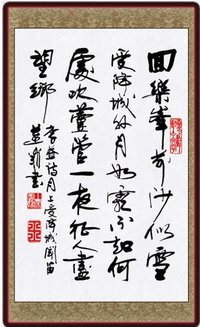 回樂峯前沙似雪
受降城外月如霜不知何
處吹蘆管一夜征人盡
望鄉
李益詩 上受降城聞笛
書